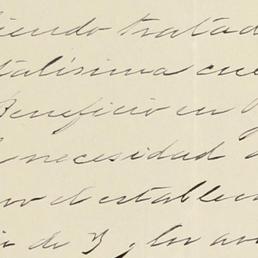 iendo tratad
talisima cue
Beneficio en
necesidad
o el establec
de 3 y los